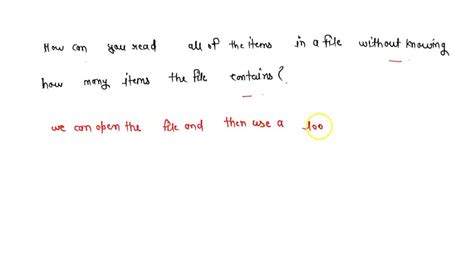 How can you read all of the items in a file without knowing
how many items the file contains?
we can open the file and then use a loo